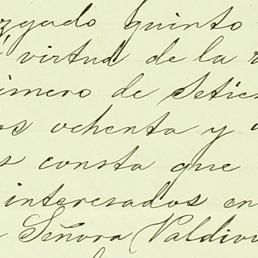 zgado quinto
virtud de la
imero de Setie
os ochenta y
s consta que
interesados en
Señora Valdivi